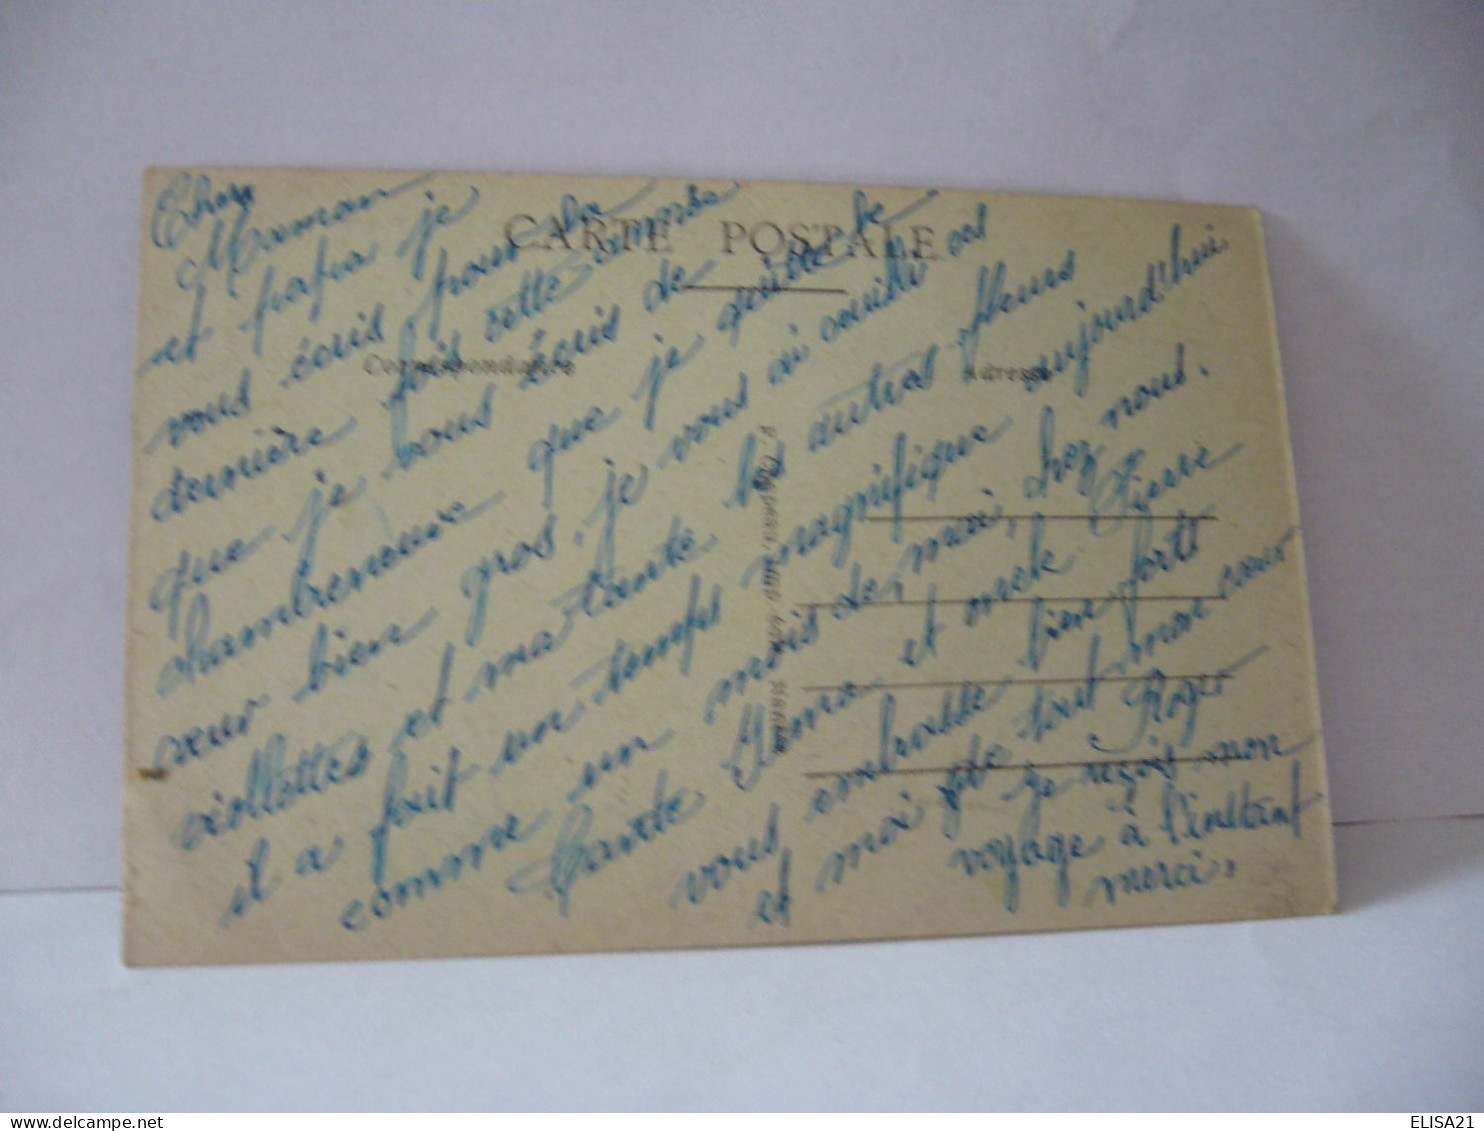 CARTE POSTALE
Correspondance
Adresse
Chere
Maman
et papa je
vous écris pour la
dernière fois cette année
que je vous écris de
chambreneuve que je quitte le
cœur bien gros, je vous ai cueilli vos
viollettes et ma tante les autres fleurs
il a fait un temps magnifique aujourd'hui
comme un mois de mai, chez nous.
Tante et oncle Pierre
vous embrasse bien forts
et moi de tout mon cœur
Roger
je reçois mon
voyage à l'instant
merci.
ELISA21